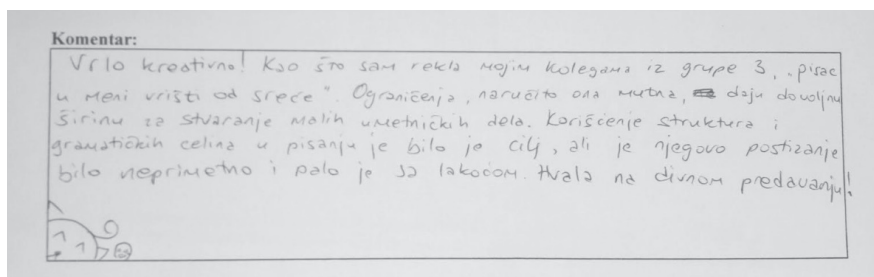 Komentar:
Vrlo kreativno! Kao što sam rekla mojim kolegama iz grupe 3, „pisac
u meni vrišti od sreće". Ograničenja, naručito ona mutna, daju dovoljnu
širinu za stvaranje malih umetničkih dela. Korišćenje struktura i
gramatičkih celina u pisanju je bilo je cilj, ali je njegovo postizanje
bilo neprimetno i palo je sa lakoćom. Hvala na divnom predavanju!